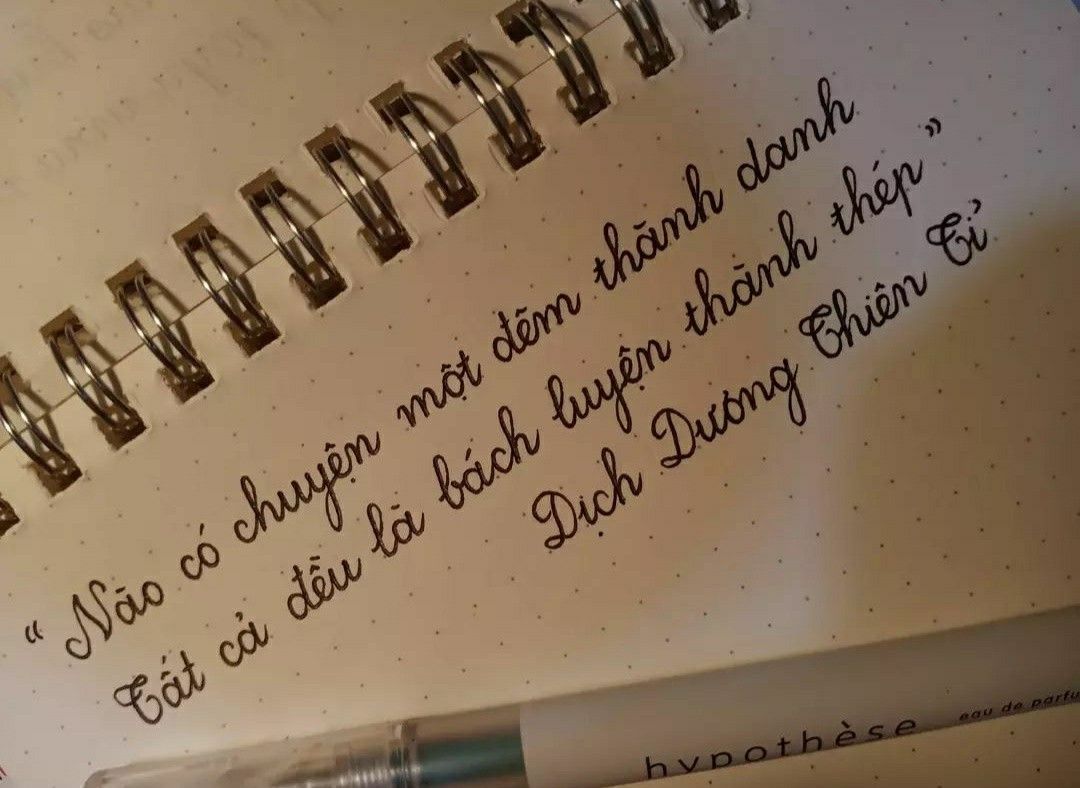 “ Nào có chuyện một đêm thành danh
Tất cả đều là bách luyện thành thép ”
Dịch Dương Thiên Tỉ
hypothèse eau de parfu